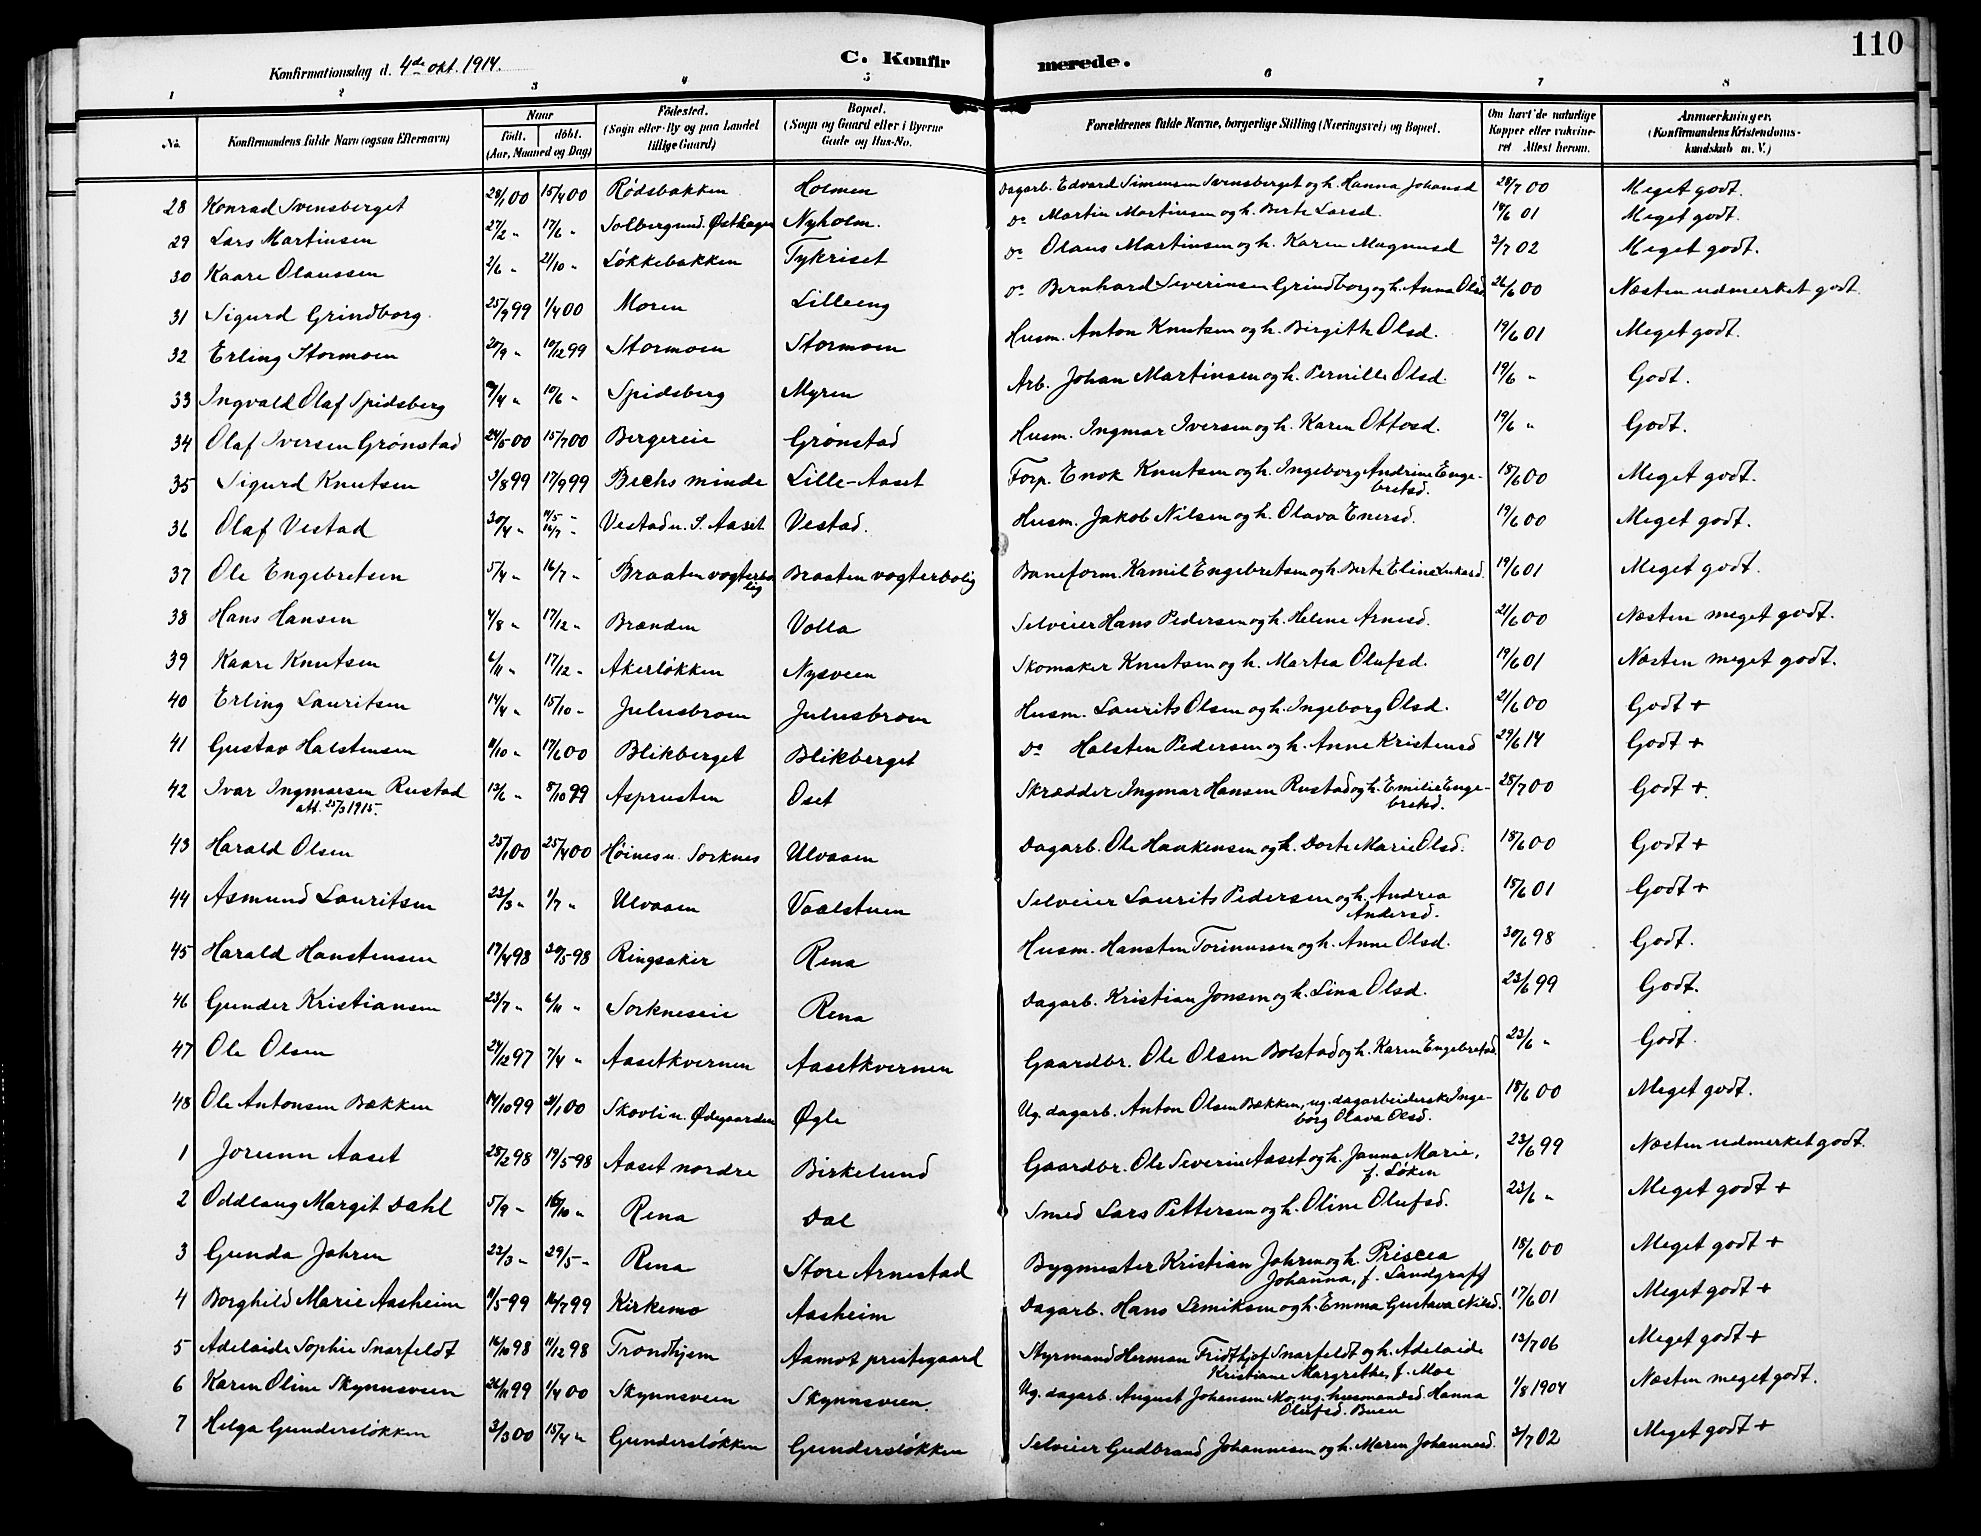 110
Konfirmationsdag d. 4de okt. 1914.
C. Konfirmerede.
1 2 3 4 5 6 7 8
No. | Konfirmandens fulde Navn (ogsaa Efternavn) | Naar født. døbt. (Aar, Maaned og Dag) | Fødested. (Sogn eller By og paa Landet tillige Gaard) | Bopæl. (Sogn og Gaard eller i Byerne Gade og Hus-No. | Forældrenes fulde Navne, borgerlige Stilling (Næringsvei) og Bopæl. | Om havt de naturlige Kopper eller vakcineret Attest herom. | Anmærkninger. (Konfirmandens Kristendomskundskab m. V.)
28 Konrad Svensberget 28/1 00 15/4 00 Rødsbakken Holmen Dagarb. Edvard Simensen Svensberget og h. Hanna Johansd 28/7 00 Meget godt.
29 Lars Martinsen 27/2 " 17/6 " Solbergund. Østhagen Nyholm. Do Martin Martinsen og h. Berte Larsd. 18/6 01 Meget godt.
30 Kaare Olaussen 2/6 " 21/10 " Løkkebakken Tykriset Do Olaus Martinsen og h. Karen Magnusd 2/7 02 Meget godt.
31 Sigurd Grindborg 25/9 99 1/4 00 Moren Lilleeng Do Bernhard Severinsen Grindborg og h. Anna Olsd 26/6 00 Næsten udmerket godt
32 Erling Stormoen 20/9 " 10/12 99 Stormoen Stormoen Husm. Anton Knutsen og h. Birgitte Olsd. 19/6 01 Meget godt.
33 Ingvald Olaf Spidsberg 9/4 " 10/6 " Spidsberg Myren Arb. Johan Martinsen og h. Pernille Olsd. 19/6 " Godt.
34 Olaf Iversen Grønstad 24/5 00 15/7 00 Bergereie Grønstad Husm. Ingmar Iversen og h. Karen Ottosd. 19/6 " Godt.
35 Sigurd Knutsen 3/8 99 17/9 99 Bechs minde Lille-Aaset Forp. Enok Knutsen og h. Ingeborg Andrine Engebretsd. 18/6 00 Meget godt.
36 Olaf Vestad 30/4 " 14/5 - 16/7 - Vestad u. S. Aaset Vestad. Husm. Jakob Nilsen og h. Olava Enersd. 19/6 00 Meget godt.
37 Ole Engebretsen 5/4 " 16/7 - Braaten vogterbolig Braaten vogterbolig Baneform. Kamil Engebretsen og h. Berte Eline Lukasd. 19/6 01 Meget godt.
38 Hans Hansen 4/8 " 17/12 - Brænden Volla Selveier Hans Pedersen og h. Helene Arnesd. 21/6 00 Næsten meget godt.
39 Kaare Knutsen 6/11 " 17/12 - Akerløkken Nysveen Skomaker Knutsen og h. Martea Olufsd. 19/6 01 Næsten meget godt.
40 Erling Lauritsen 14/4 " 15/10 - Julusbroen Julusbroen Husm. Laurits Olsen og h. Ingeborg Olsd. 21/6 00 Godt +
41 Gustav Halstensen 11/10 " 17/6 00 Blikberget Blikberget Do Halsten Pedersen og h. Anne Kristensd 29/6 14 Godt +
42 Ivar Ingmarsen Rustad 13/6 " 8/10 99 Asprusten Oset Skrædder Ingmar Hansen Rustad og h. Emilie Engebretsd. 28/7 00 Godt +
att. 25/3 1915.
43 Harald Olsen 25/1 00 25/4 00 Høines u. Sorknes Ulvaaen Dagarb. Ole Haakensen og h. Dorte Marie Olsd. 18/6 00 Godt +
44 Asmund Lauritsen 23/3 " 1/7 " Ulvaaen Vaalstuen Selveier Laurits Pedersen og h. Andrea Andersd. 15/6 01 Godt +
45 Harald Hanstensen 17/4 98 30/5 98 Ringsaker Rena Husm. Hansten Torinussen og h. Anne Olsd. 30/6 98 Godt.
46 Gunder Kristiansen 23/7 " 6/11 " Sorkneseie Rena Dagarb. Kristian Jonsen og h. Lina Olsd. 23/6 99 Godt.
47 Ole Olsen 24/12 97 7/4 " Aasetkvernen Aasetkvernen Gaardbr. Ole Olsen Bolstad og h. Karen Engebretsd. 23/6 " Godt.
48 Ole Antonsen Bækken 14/10 99 21/1 00 Skovli u. Ødegaarden Øgle Ug. dagarb. Anton Olsen Bækken, ug. dagarbeiderske Ingeborg Olava Olsd. 18/6 00 Meget godt.
1 Jorunn Aaset 28/2 98 19/5 98 Aaset nordre Birkelund Gaardbr. Ole Severin Aaset og h. Janna Marie, f. Løken 23/6 99 Næsten udmerket godt.
2 Oddlaug Margit Dahl 5/9 " 16/10 " Rena Dal Smed Lars Pettersen og h. Oline Olufsd. 23/6 " Meget godt +
3 Gunda Jahren 23/3 " 29/5 - Rena Store Arnestad Bygmester Kristian Jahren og h. Priscea Johanna, f. Landgraff 18/6 00 Meget godt +
4 Borghild Marie Aasheim 11/5 99 16/7 99 Kirkemo Aasheim Dagarb. Hans Lemiksen og h. Emma Gustava Nilsd. 17/6 01 Meget godt +
5 Adelaide Sophie Snarfeldt 16/10 98 11/12 98 Trondhjem Aamot prestegaard Styrmand Herman Fridthjof Snarfeldt og h. Adelaide Kristiane Margrethe, f. Moe 13/7 06 Meget godt +
6 Karen Oline Skynnsveen 26/11 99 1/4 00 Skynnsveen Skynnsveen. Ug. dagarb. August Johansen Mo, ug. husmandsd. Hanna Olufsd. Buen 1/8 1904 Næsten meget godt.
7 Helga Gundersløkken 3/3 00 15/4 " Gundersløkken Gundersløkken Selveier Gudbrand Johannesen og h. Maren Johannesd. 2/7 02 Meget godt +